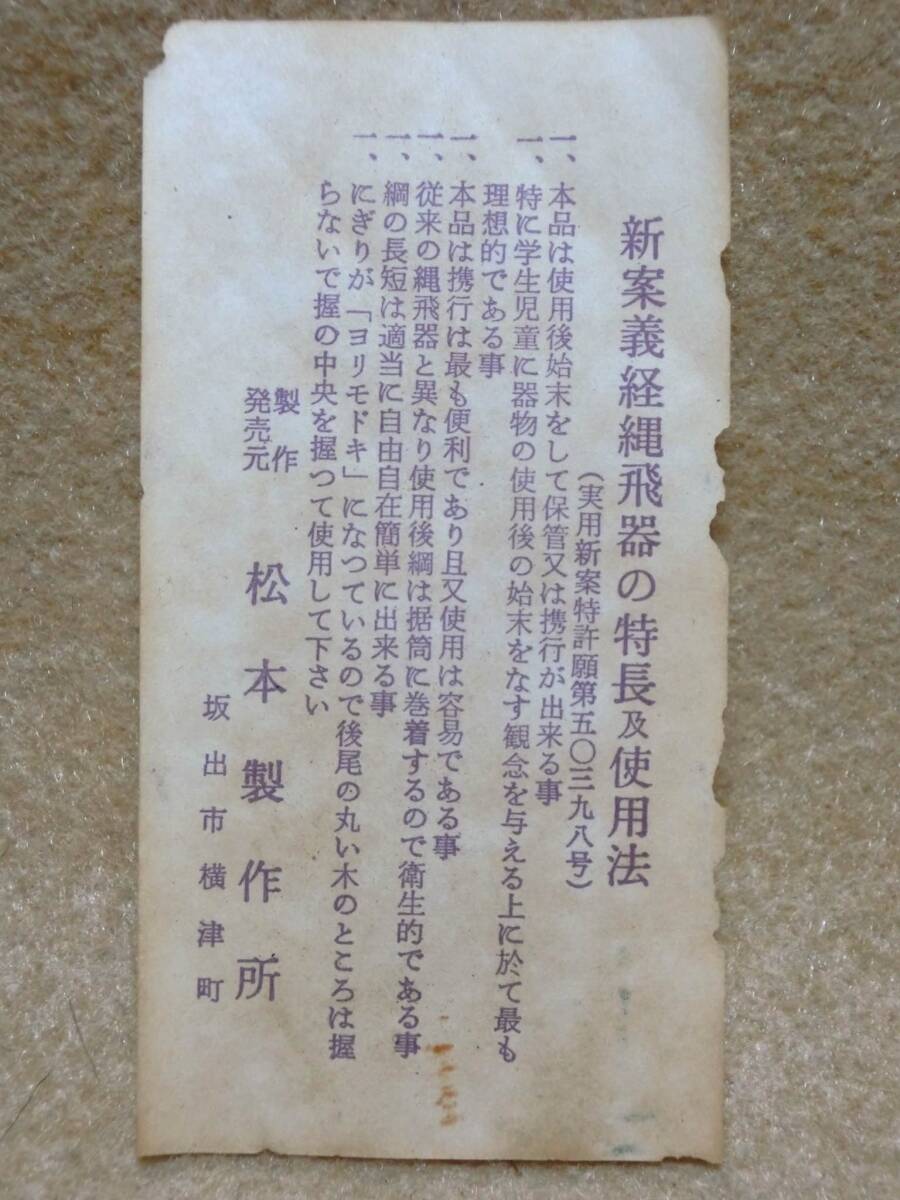 新案義経縄飛器の特長及使用法
(実用新案特許願第五〇三九八号)
一、本品は使用後始末をして保管又は携行が出来る事
一、特に学生児童に器物の使用後の始末をなす観念を与える上に於て最も
理想的である事
一、本品は携行は最も便利であり且又使用は容易である事
一、従来の縄飛器と異なり使用後綱は据筒に巻着するので衛生的である事
一、綱の長短は適当に自由自在簡単に出来る事
一、にぎりが「ヨリモドキ」になつているので後尾の丸い木のところは握
らないで握の中央を握つて使用して下さい
製作
発売元
松本製作所
坂出市横津町